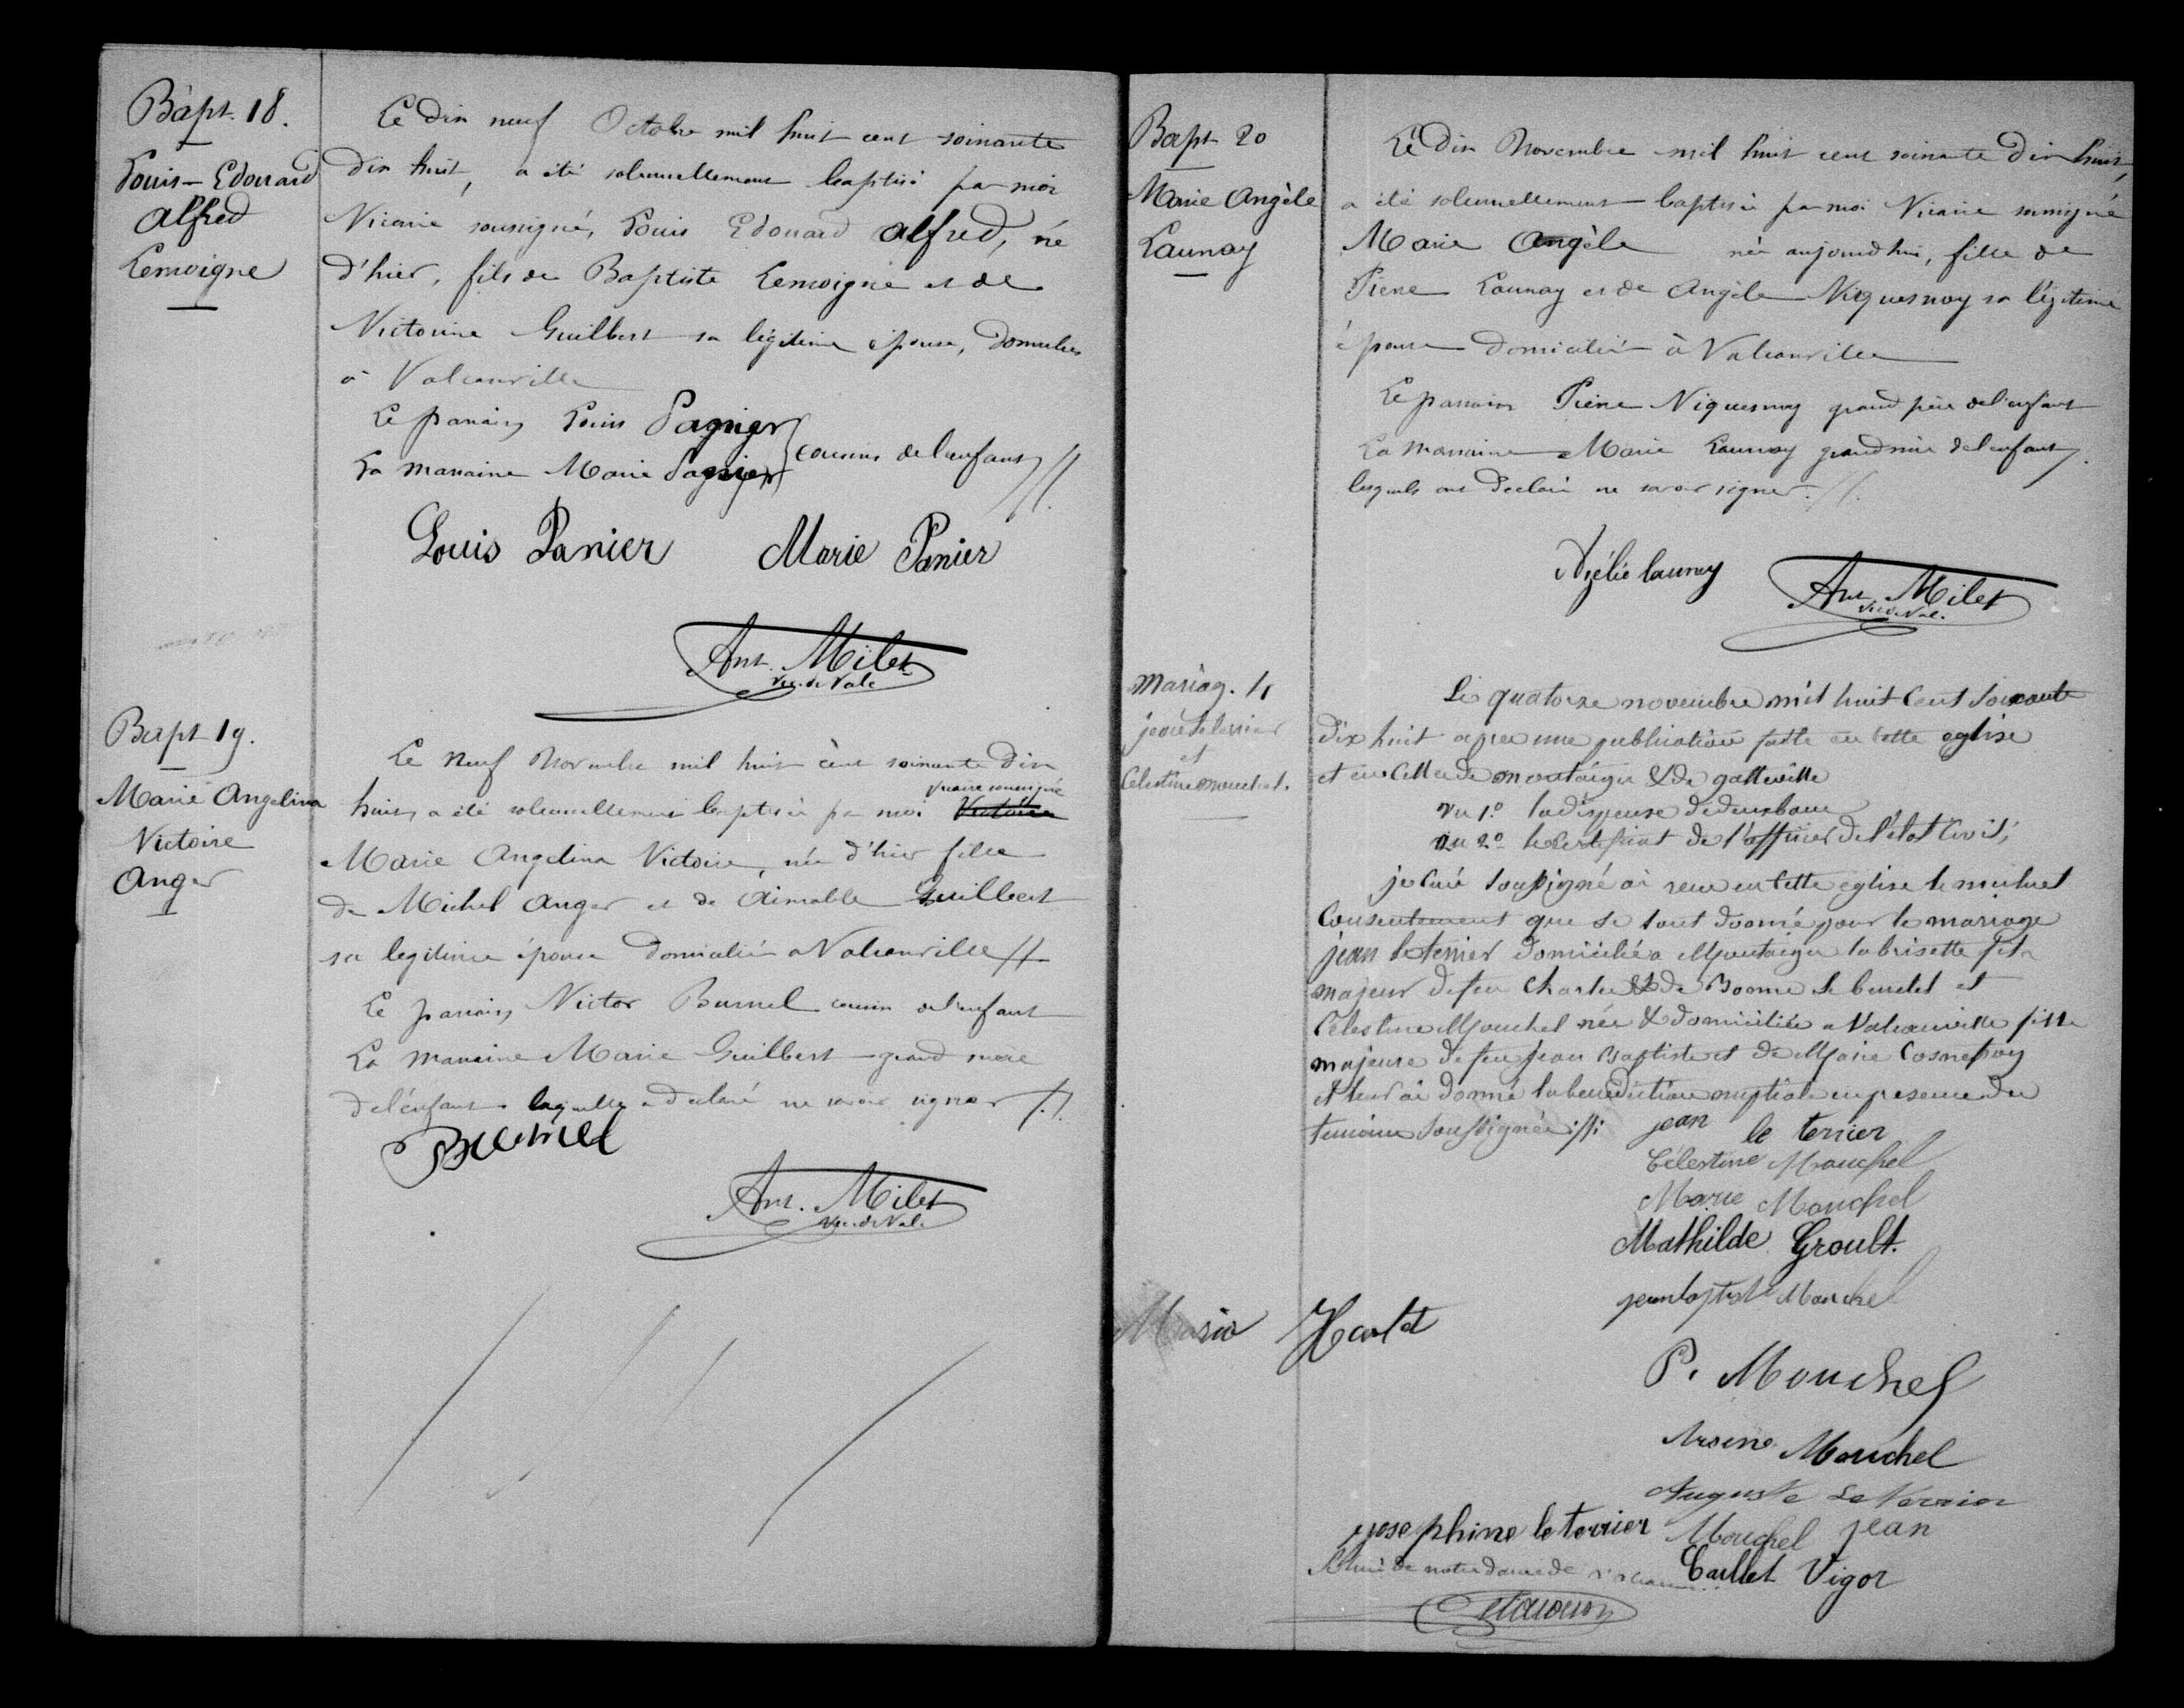 Bapt. 18.
Louis-Edouard
Alfred
Lemoigne
Le dix neuf Octobre mil huit cent soixante
dix huit, a été solennellement baptisé par moi
Vicaire soussigné, Louis Edouard Alfred, né
d'hier, fils de Baptiste Lemoigne et de
Victorine Guilbert sa légitime épouse, domiciliés
à Valcanville
Le parrain Louis Pagnier
La marraine Marie Pagnier
cousins de l'enfant //.
Louis Panier Marie Panier
Ant. Milet
Vic. de Valc
Bapt 19.
Marie Angelina
Victoire
Anger
Le neuf Novembre mil huit cent soixante dix
huit, a été solennellement baptisée par moi Vicaire soussigné
Marie Angelina Victoire, née d'hier fille
de Michel Anger et de Aimable Guilbert
sa legitime épouse domiciliés a Valcanville //
Le parrain Victor Burnel cousin de l'enfant
La marraine Marie Guilbert grand mère
de l'enfant laquelle a declaré ne savoir signer //.
Burnel
Ant. Milet
Vic. de Valc
Bapt 20
Marie Angèle
Launay
Le dix Novembre mil huit cent soixante dix huit,
a été solennellement baptisée par moi Vicaire soussigné
Marie Angèle née aujourd'hui, fille de
Pierre Launay et de Angèle Niquesnay sa légitime
épouse domiciliés à Valcanville
Le parrain Pierre Niquesnay grand père de l'enfant
La marraine Marie Launay grand mère de l'enfant
lesquels ont declaré ne savoir signer. //.
Azélie launay
Ant. Milet
Vic. de Val.
mariag. 4
jean le terrier
et
Celestine mouchel.
Le quatorze novembre mil huit Cent Soixante
dix huit apres une publication faite en cette eglise
et en celles de montaigu & de gatteville
vu 1º la dispense de deux bans
vu 2º le certificat de l'officier de l'état Civil,
je Curé soussigné ai recu en cette eglise le mutuel
Consentement que se sont donné pour le mariage
jean le terrier domicilié a Montaigu la brisette fils
majeur de feu Charles & de Bonne Le
Célestine Mouchel née & domiciliée a Valcanville fille
majeure de feu jean Baptiste et de Marie Cosnefroy
et leur ai donné la benediction nuptiale en presence des
temoins Soussignés ://:
jean le terrier
Célestine Mouchel
Marie Mouchel
Mathilde Groult.
jean baptiste Mouchel
Maria
P. Mouchel
Arsene Mouchel
Auguste Le Terrier
josephine le terrier Mouchel jean
Curé de notre dame de
Caillet Vigor